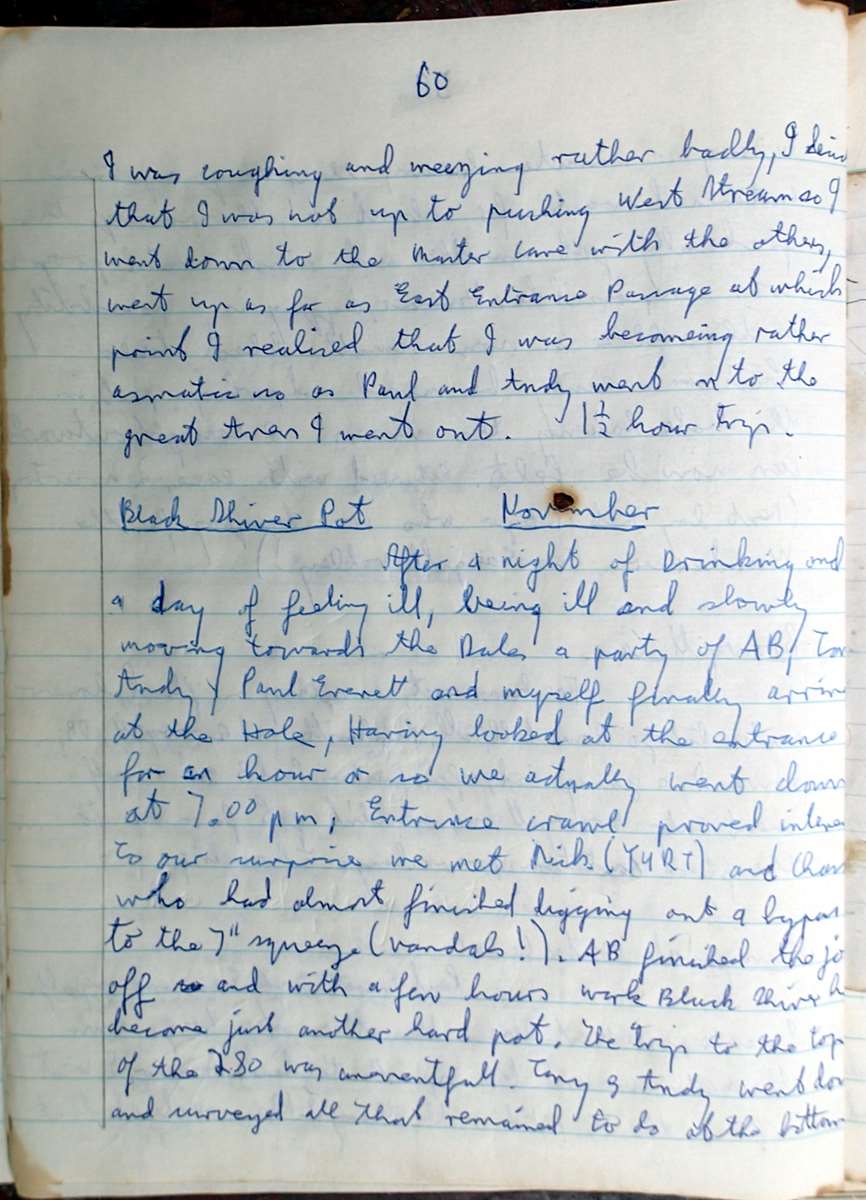 60
I was coughing and weezing rather badly, I
that I was not up to pushing West Stream so I
went down to the Master Cave with the others,
went up as far as East Entrance Passage at which
point I realised that I was becomeing rather
asmatic so as Paul and Andy went into the
great Aven I went out. 1½ hour Trip.
Black Shiver Pot November
After a night of Drinking and
a day of feeling ill, being ill and slowly
moving towards the Dales a party of AB,
Andy, Paul Everett and myself finally
at the Hole, Having looked at the entrance
for an hour or so we actually went down
at 7.00 pm, Entrance crawl proved
to our surprise we met (YURT) and
who had almost finished digging out a
to the 7" squeeze (vandals!). AB finished the
off and with a few hours work Black Shiver
become just another hard pot. The Trip to the top
of the 280 was uneventfull. Tony & Andy went
and surveyed all that remained to do at the bottom